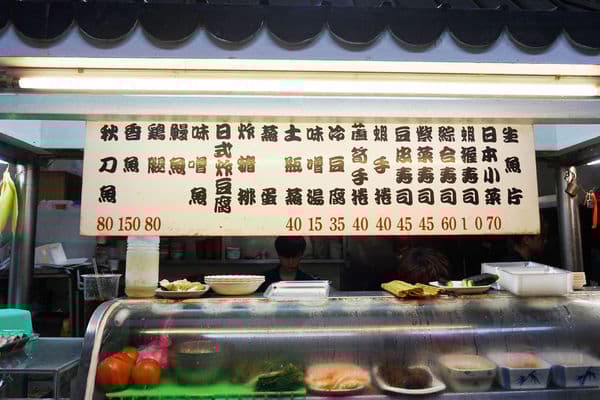 生魚片
日本小菜 70
蝦握壽司 1 0
綜合壽司 60
紫菜壽司 45
豆皮壽司 45
蝦手捲 40
蘆筍手捲 40
冷豆腐 35
味噌湯 15
土瓶蒸 40
蒸蛋
炸豬排
日式炸豆腐
味噌魚
鰻魚
雞腿 80
香魚 150
秋刀魚 80